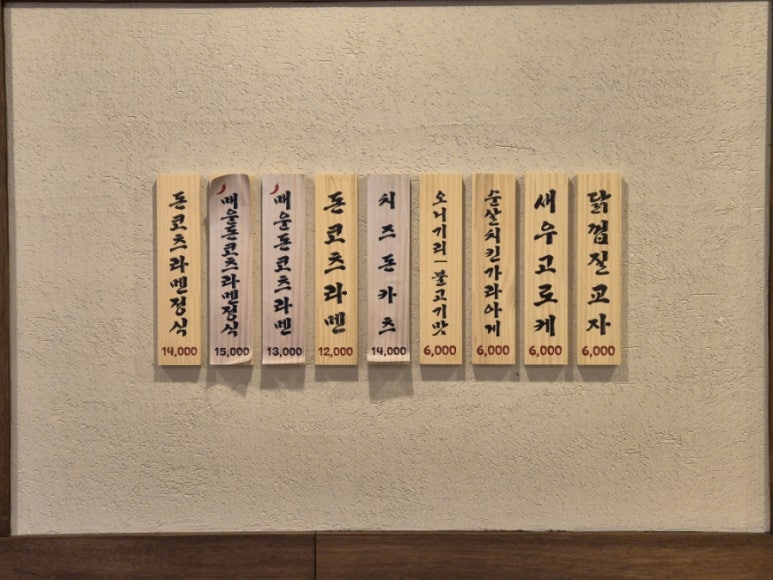 돈코츠라멘정식
14,000
매운돈코츠라멘정식
15,000
매운돈코츠라멘
13,000
돈코츠라멘
12,000
치즈돈카츠
14,000
오니기리-불고기맛
6,000
순살치킨가라아게
6,000
새우고로케
6,000
닭껍질교자
6,000